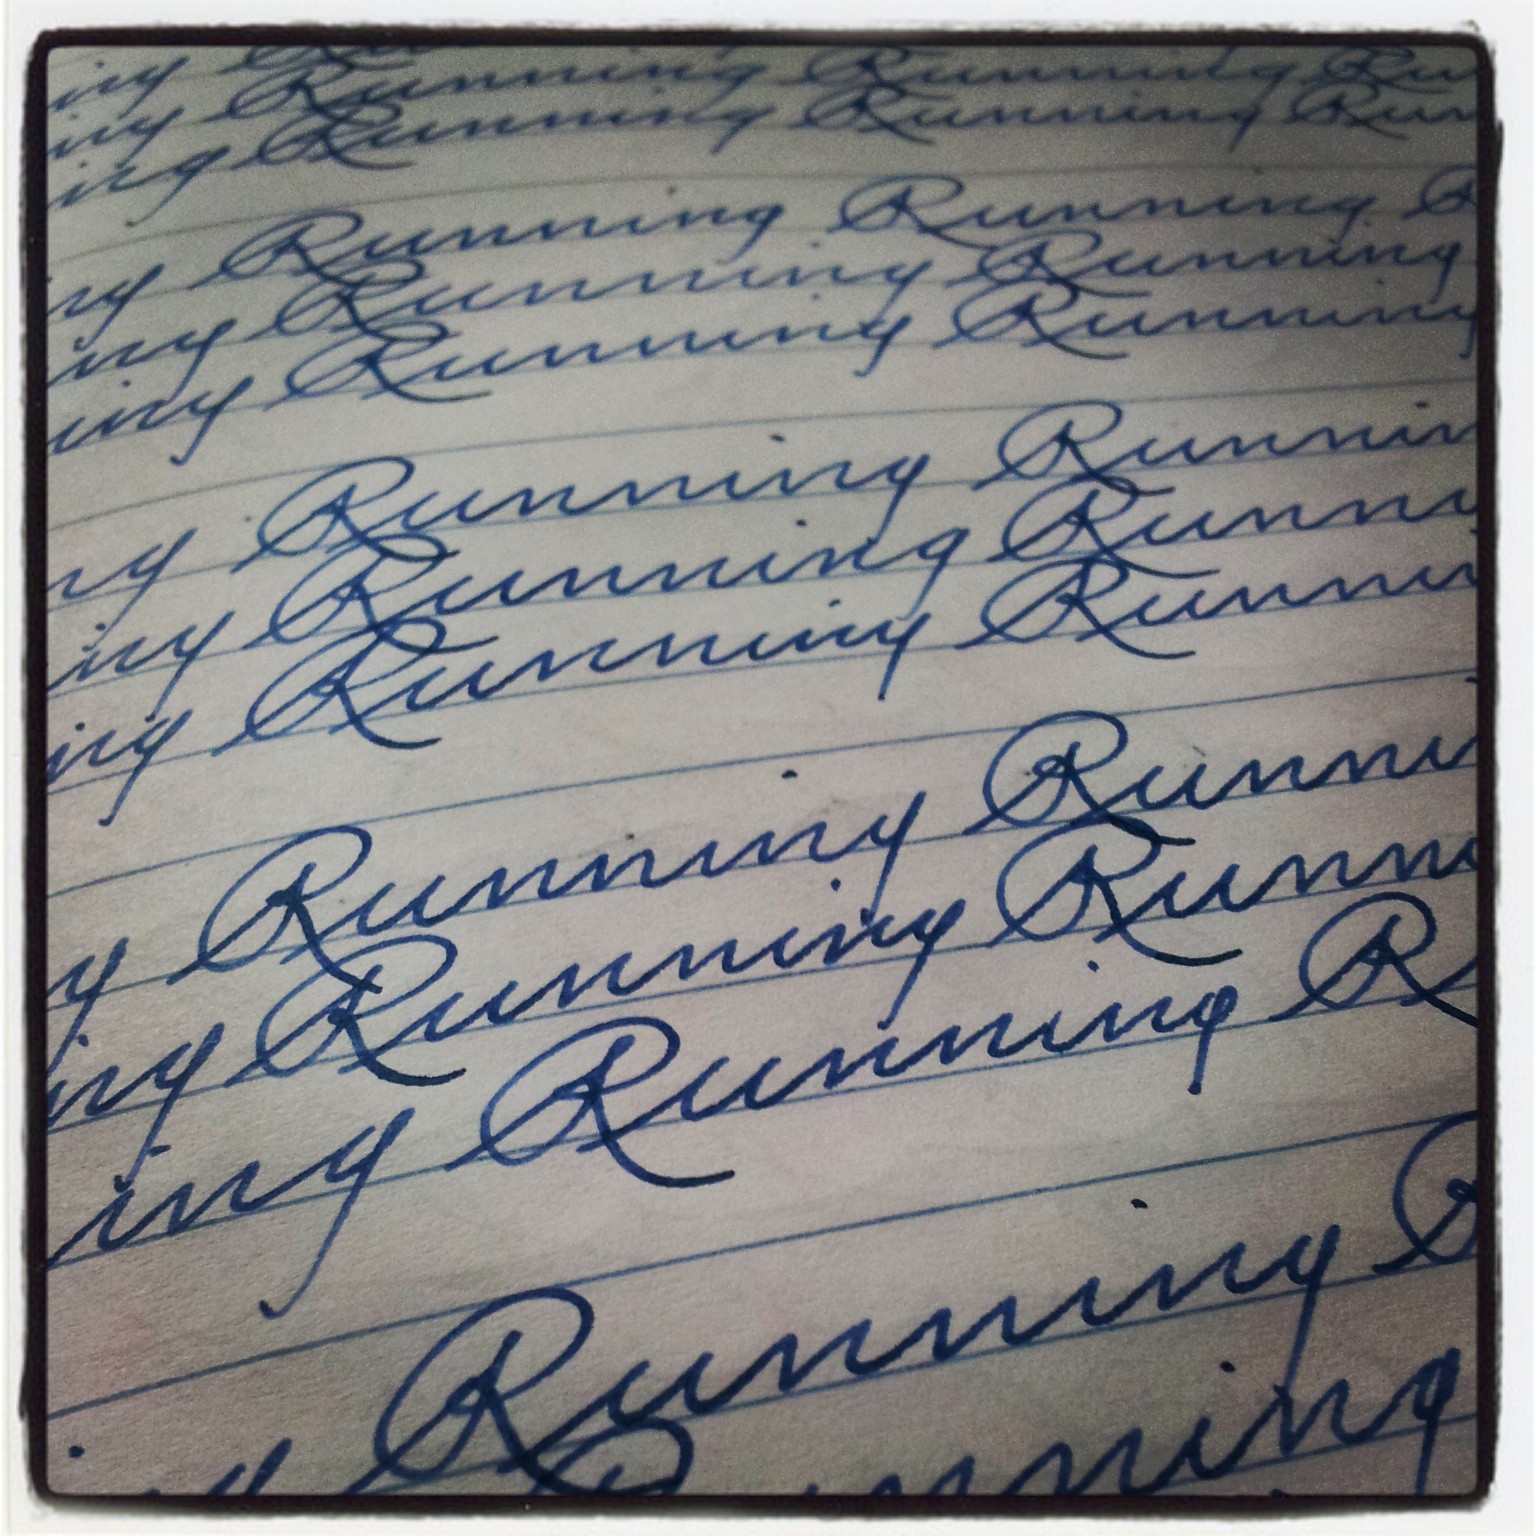 ing Running Running Run
ing Running Running Run
ng Running Running
ing Running Running
ing Running Running
ng Running Runnin
ing Running Runni
ing Running Runni
g Running Runni
ing Running Runn
ing Running R
Running
nning